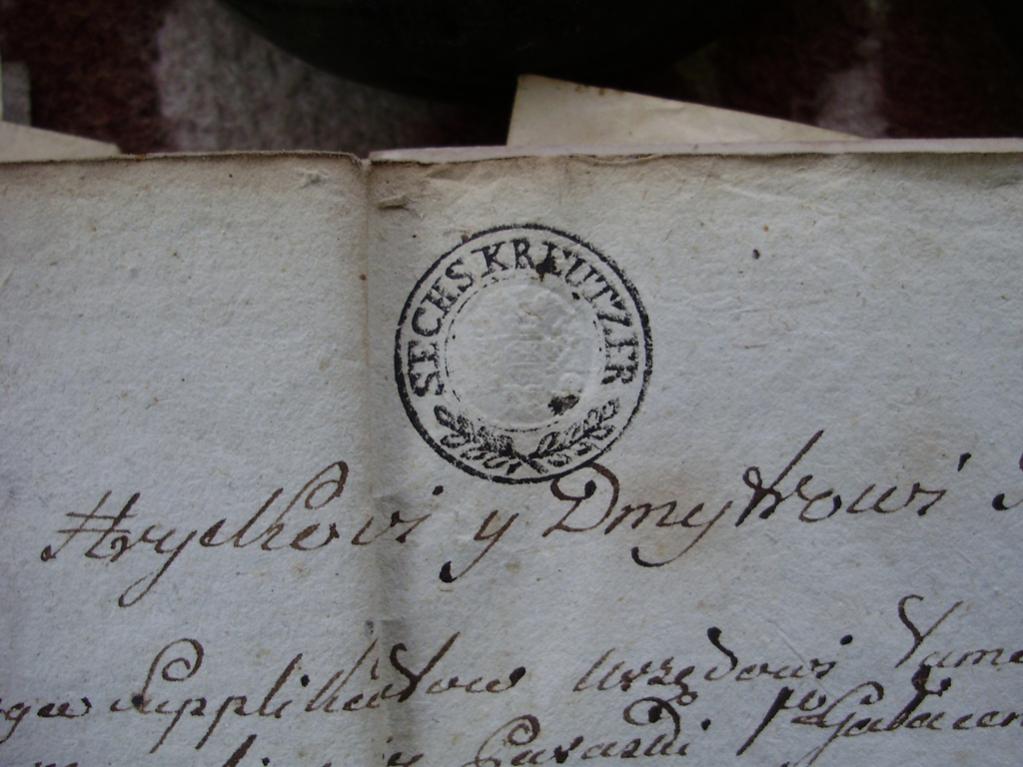 SECHS KREUTZER
Hryćkowi y Dmytrowi
Supplikantow urzędowi tame
y Paraski